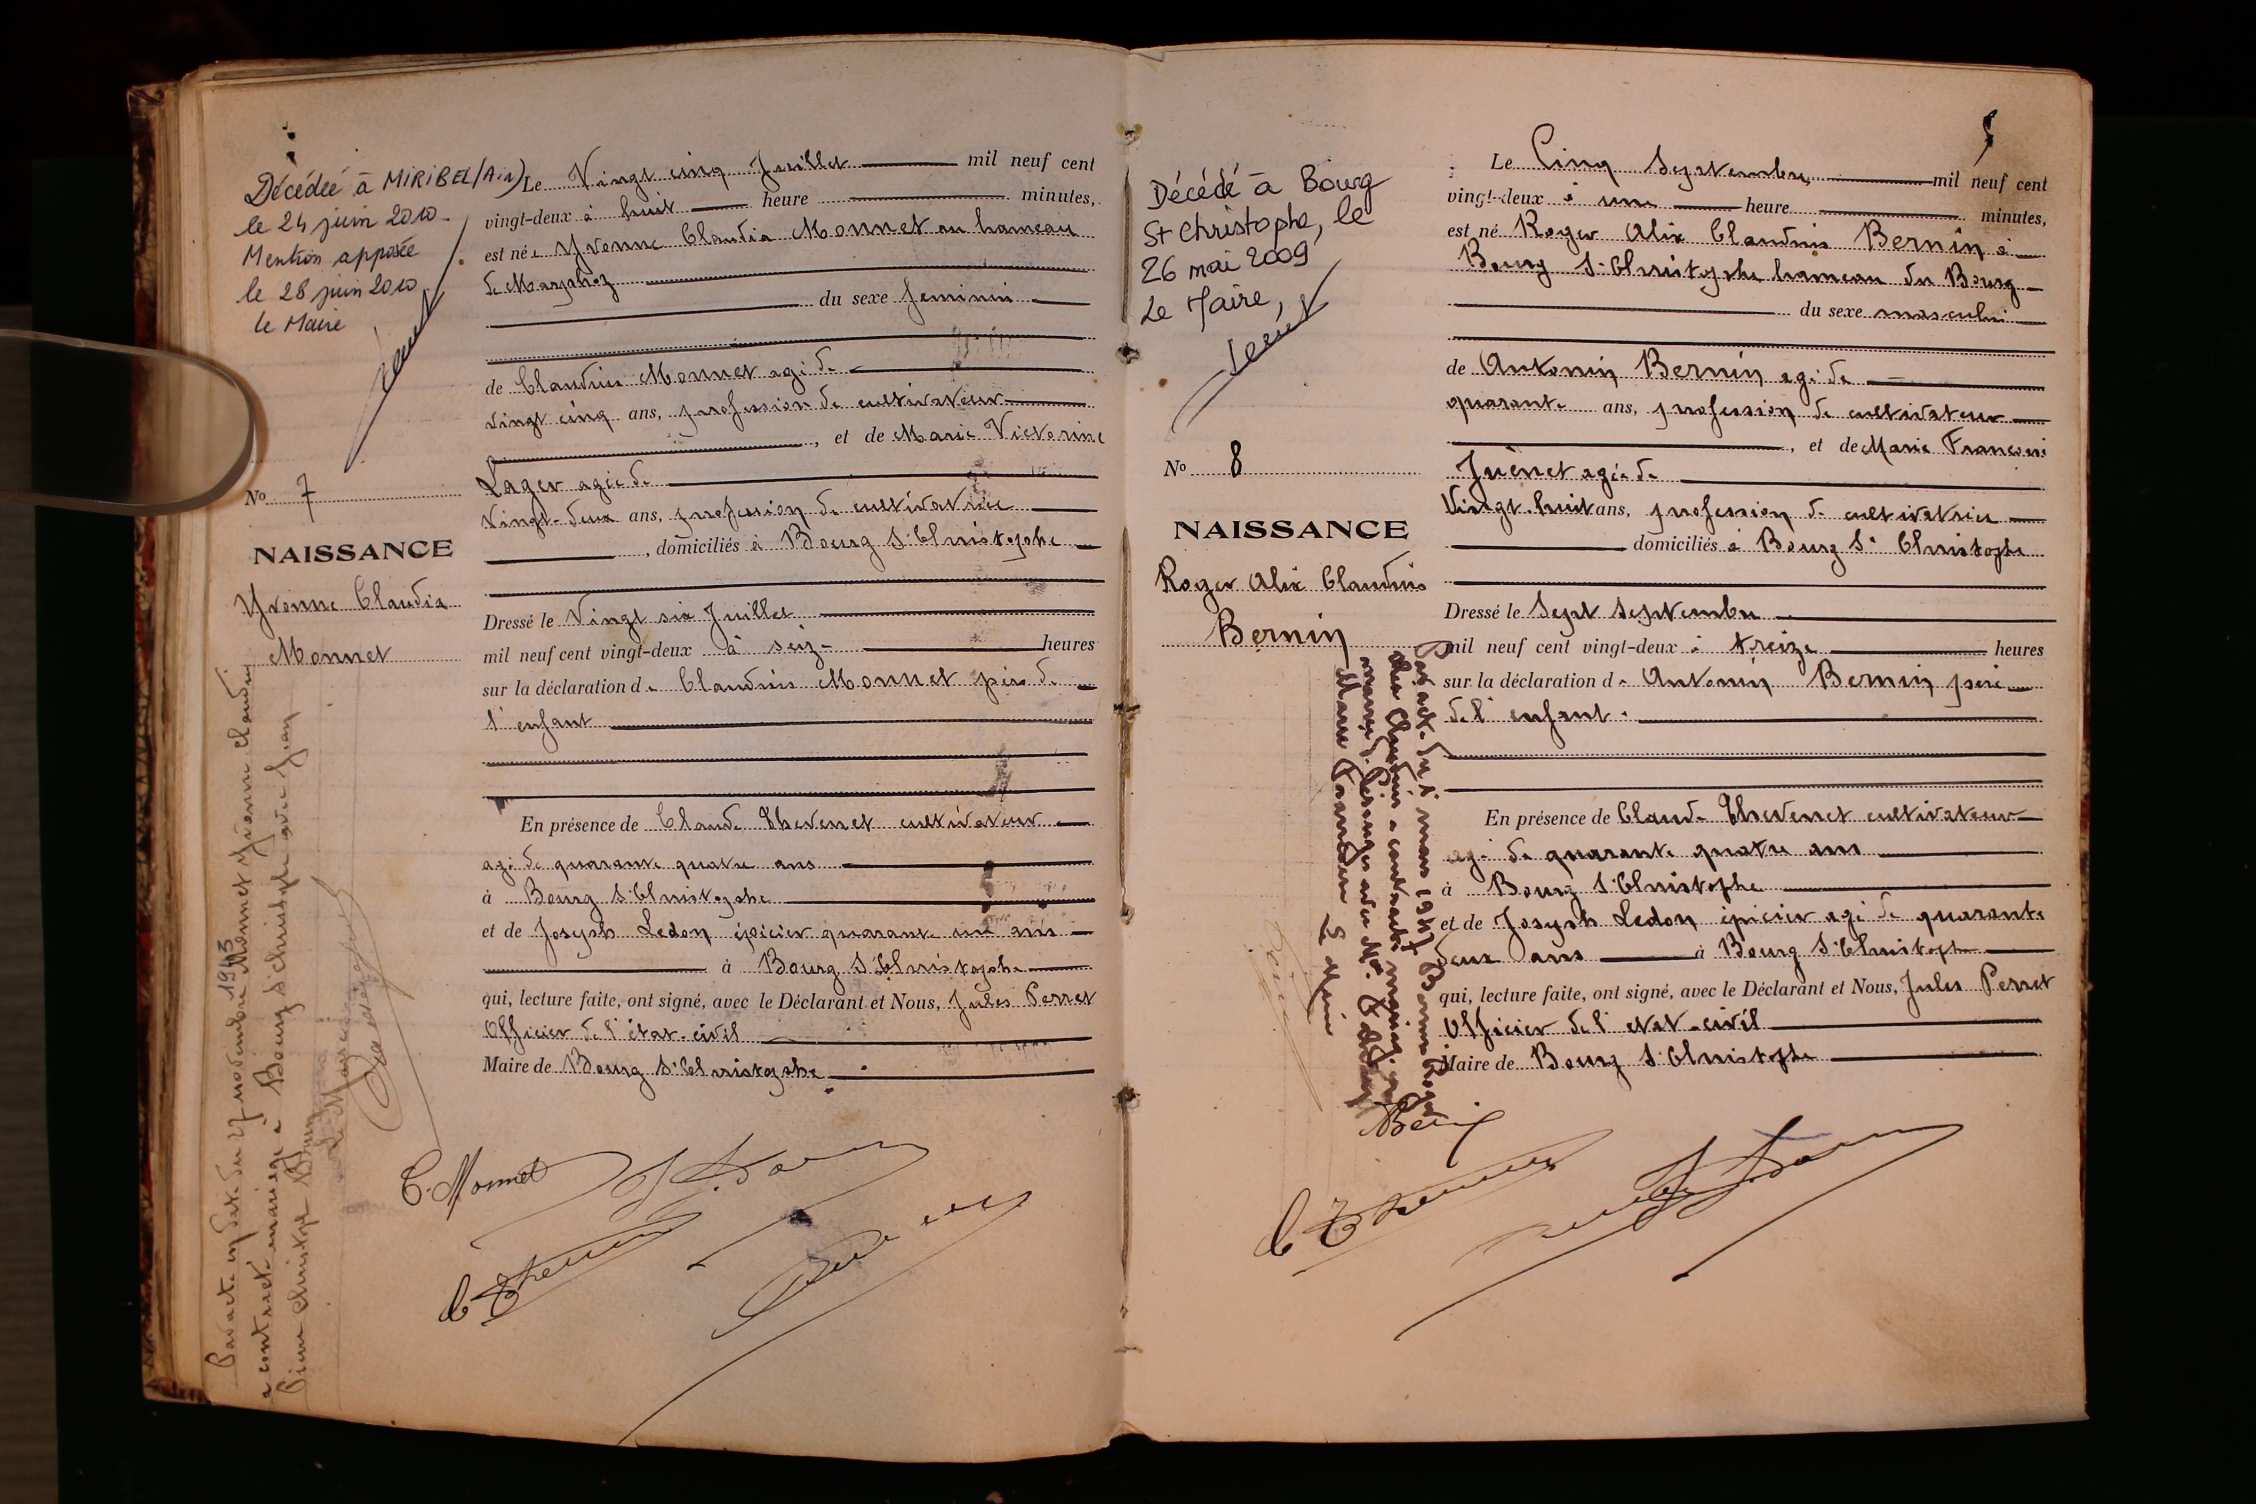 Décédée à MIRIBEL (Ain)
le 24 juin 2010.
Mention apposée
le 28 juin 2010
le Maire
No 7
NAISSANCE
Yvonne Claudia
Monnet
Par acte en date du 27 novembre 1943 Monnet Yvonne Claudia
a contracté mariage à Bourg St Christophe avec Jean
Pierre Christophe
Le Maire
Le Vingt cinq Juillet mil neuf cent
vingt-deux à huit heure minutes,
est née Yvonne Claudia Monnet au hameau
de Marphoz
du sexe feminin
de Claudius Monnet agé de
vingt cinq ans, profession de cultivateur
, et de Marie Victorine
Lager agée de
vingt-deux ans, profession de cultivatrice
, domiciliés à Bourg St Christophe
Dressé le Vingt six Juillet
mil neuf cent vingt-deux à seize heures
sur la déclaration de Claudius Monnet père de
l'enfant
En présence de Claude Thevenet cultivateur
agé de quarante quatre ans
à Bourg St Christophe
et de Joseph Ledon épicier quarante un ans
à Bourg St Christophe
qui, lecture faite, ont signé, avec le Déclarant et Nous, Jules Perret
Officier de l'état-civil
Maire de Bourg St Christophe
C. Monnet
Décédé à Bourg
St Christophe, le
26 mai 2009
Le Maire,
No 8
NAISSANCE
Roger Alix Claudius
Bernin
Par acte du 1 mars 1947 Bernin Roger
Alix Claudius a contracté mariage
Marie Françoise Le Maire
Le Cinq Septembre mil neuf cent
vingt-deux à une heure minutes,
est né Roger Alix Claudius Bernin à
Bourg St Christophe hameau du Bourg
du sexe masculin
de Antonin Bernin agé de
quarante ans, profession de cultivateur
, et de Marie Françoise
Juénet agée de
Vingt-huit ans, profession de cultivatrice
domiciliés à Bourg St Christophe
Dressé le Sept Septembre
mil neuf cent vingt-deux à treize heures
sur la déclaration de Antonin Bernin père
de l'enfant.
En présence de Claude Thevenet cultivateur
agé de quarante quatre ans
à Bourg St Christophe
et de Joseph Ledon épicier agé de quarante
deux ans à Bourg St Christophe
qui, lecture faite, ont signé, avec le Déclarant et Nous, Jules Perret
Officier de l'etat-civil
Maire de Bourg St Christophe